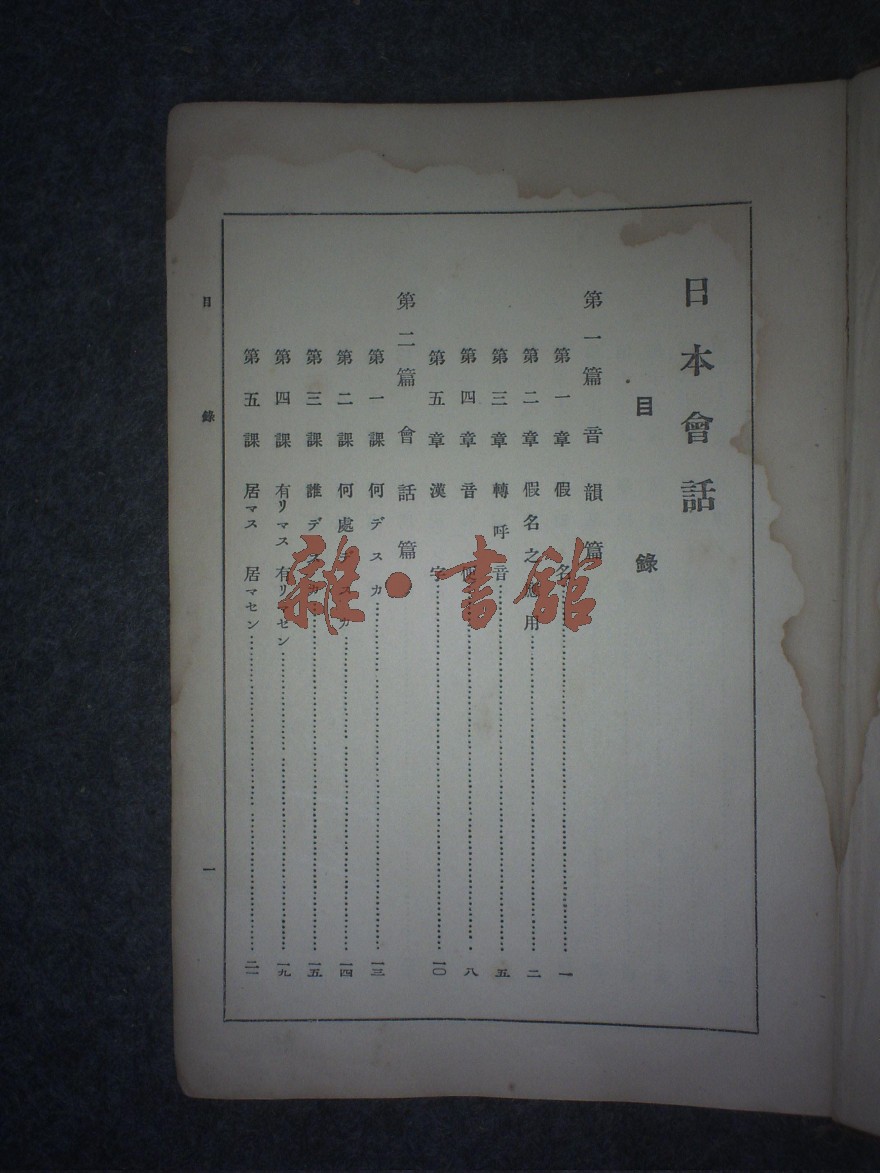 日本會話
目錄
第一篇 音韻篇
第一章 假名……一
第二章 假名之應用……二
第三章 轉呼音……五
第四章 音便……八
第五章 漢字……一〇
第二篇 會話篇
第一課 何デスカ……一三
第二課 何處デスカ……一四
第三課 誰デスカ……一五
第四課 有リマス 有リマセン……一九
第五課 居マス 居マセン……二一
目錄 一
雜·書館